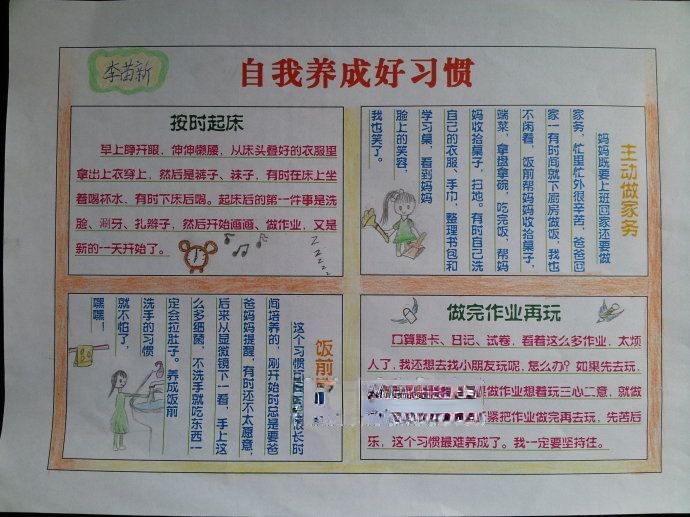 李苗新
自我养成好习惯
按时起床
早上睁开眼，伸伸懒腰，从床头叠好的衣服里
拿出上衣穿上，然后是裤子、袜子，有时在床上坐
着喝杯水，有时下床后喝。起床后的第一件事是洗
脸、涮牙、扎辫子，然后开始画画、做作业，又是
新的一天开始了。
Z
Z
Z
Z
Z
主动做家务
妈妈既要上班回家还要做
家务，忙里忙外很辛苦，爸爸回
家一有时间就下厨房做饭，我也
不闲着，饭前帮妈妈收拾桌子，
端菜，拿盘拿碗，吃完饭，帮妈
妈收拾桌子，扫地。有时自己洗
自己的衣服、手巾，整理书包和
学习桌，看到妈妈
脸上的笑容，
我也笑了。
饭前
这个习惯
长时
间培养的，刚开始时总是要爸
爸妈妈提醒，有时还不太愿意，
后来从显微镜下一看，手上这
么多细菌，不洗手就吃东西一
定会拉肚子。养成饭前
洗手的习惯
就不怕了，
嘿嘿！
做完作业再玩
口算题卡、日记、试卷，看着这么多作业，太烦
人了，我还想去找小朋友玩呢，怎么办？如果先去玩，
做作业想着玩三心二意，就做
紧把作业做完再去玩，先苦后
乐，这个习惯最难养成了。我一定要坚持住。